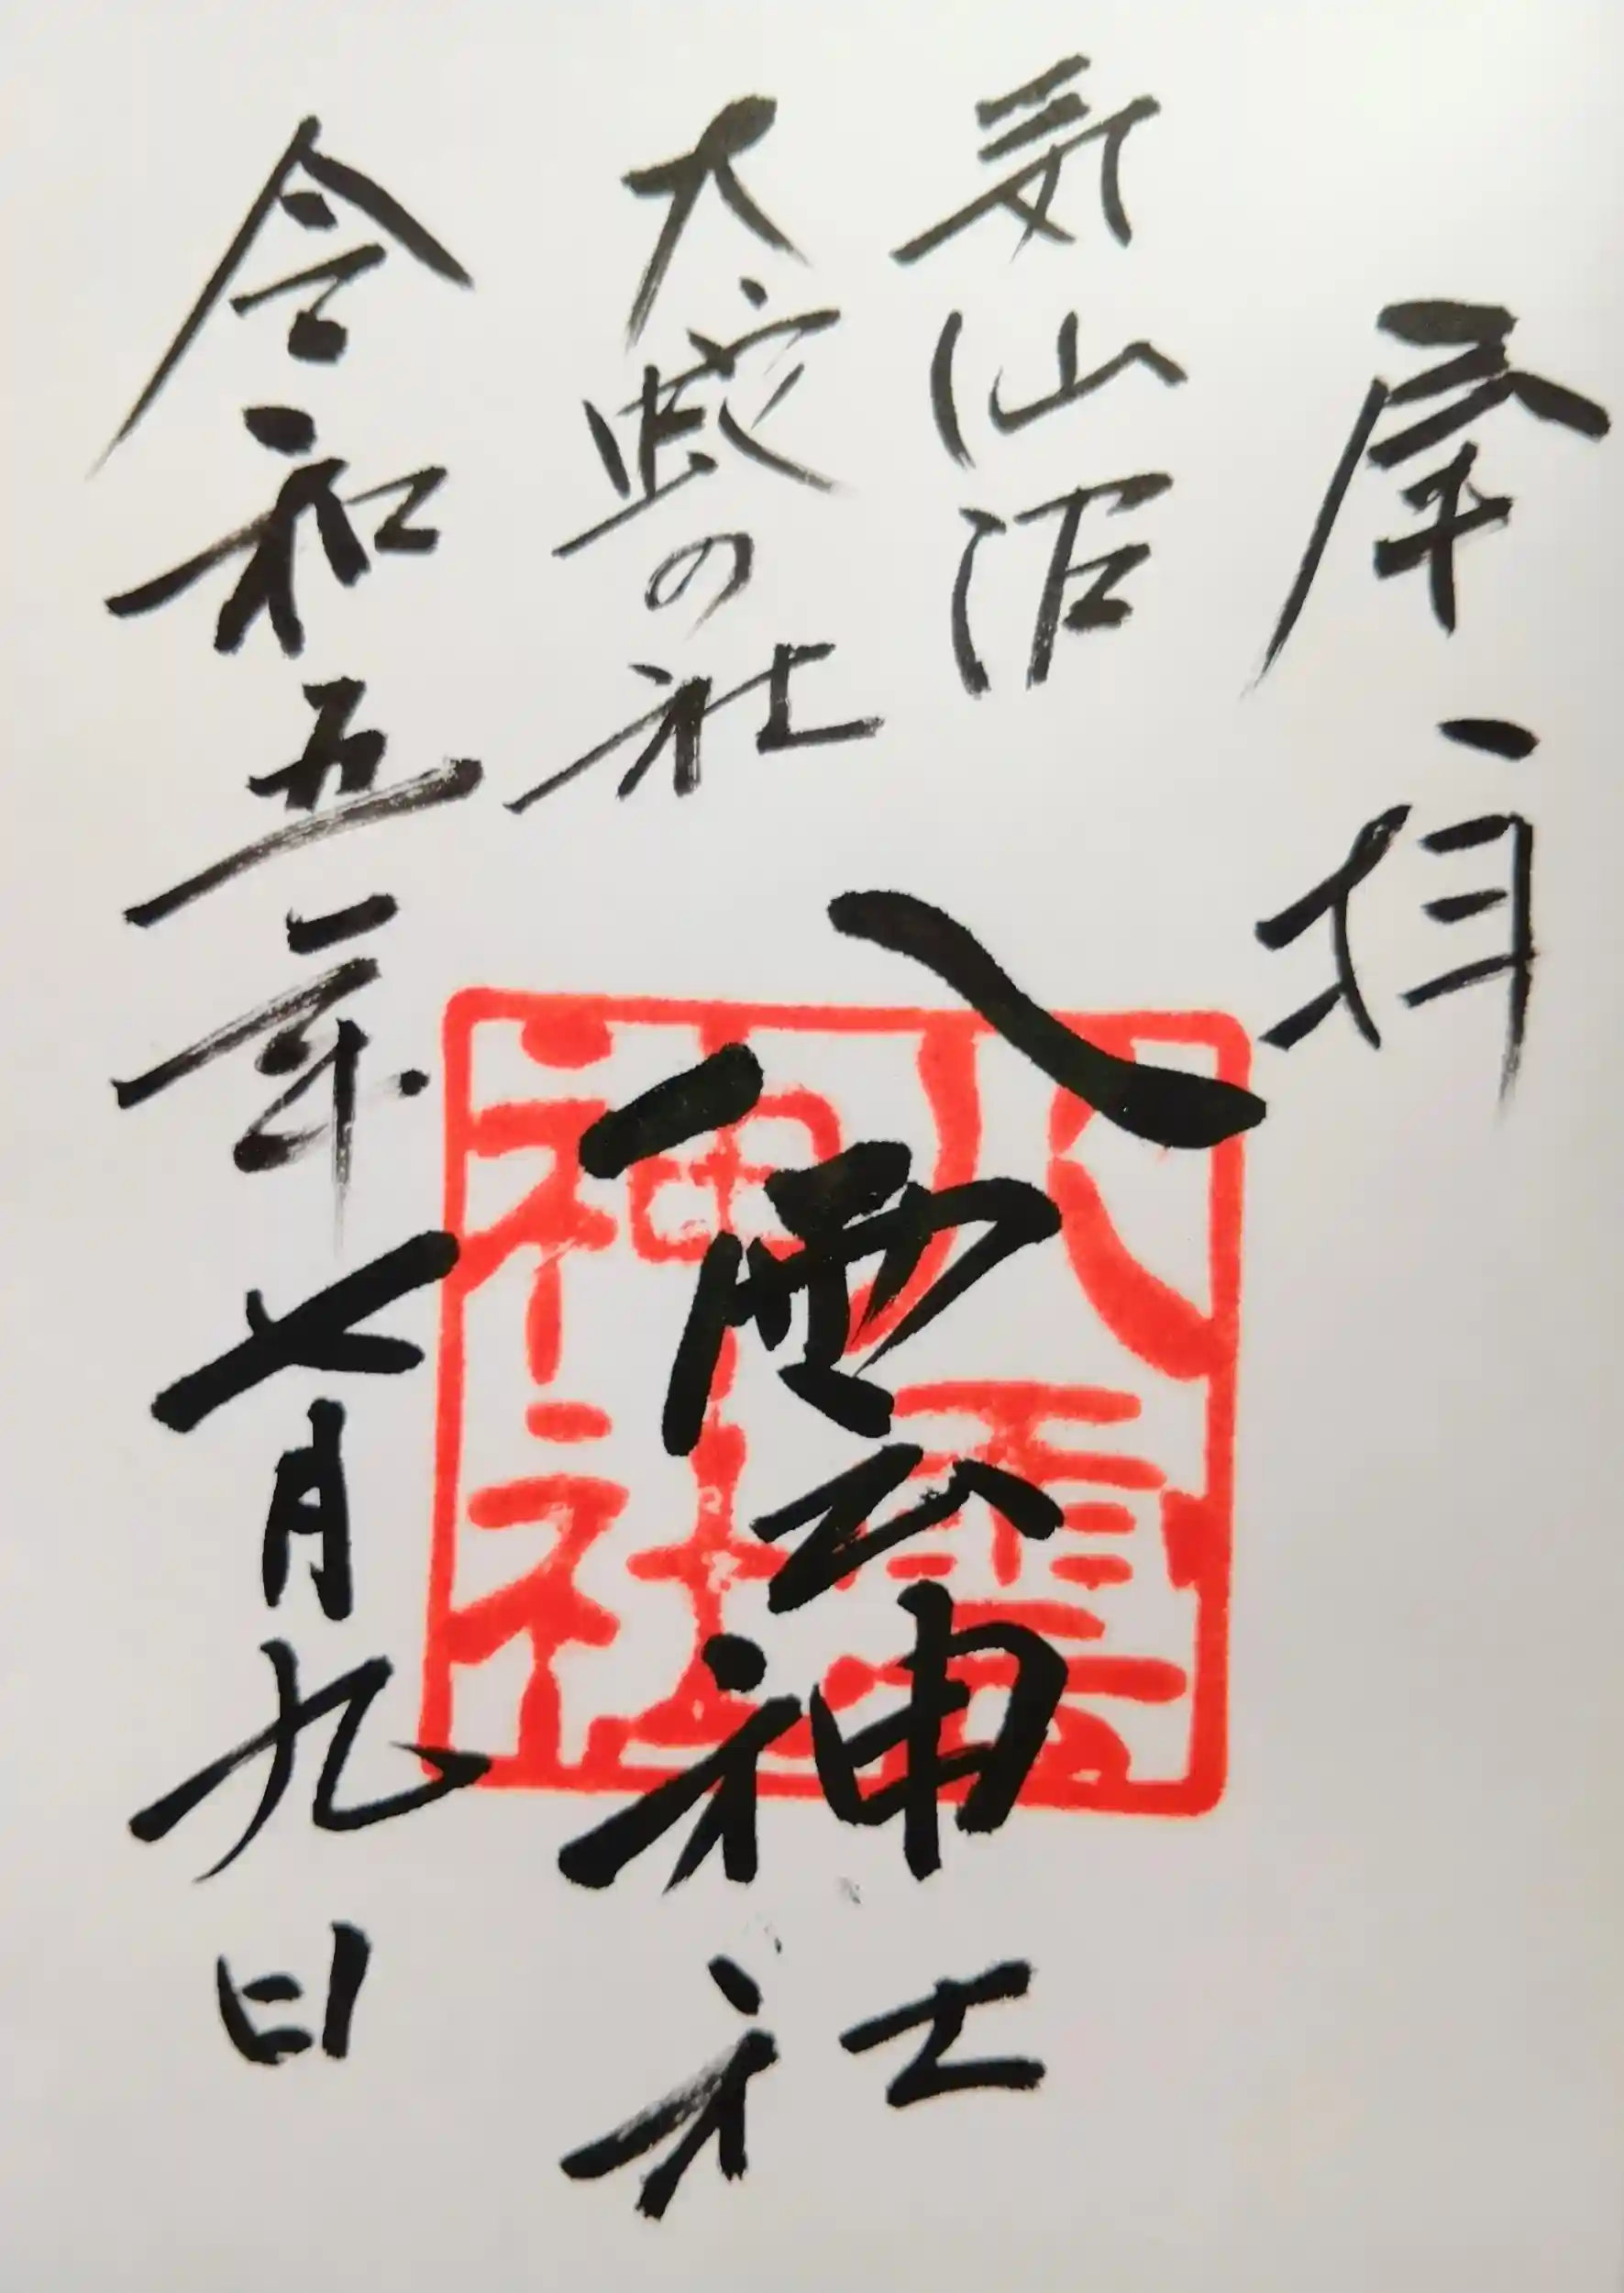 奉拝
気仙沼
大蛇の社
八雲神社
令和五年七月九日
八雲
神社